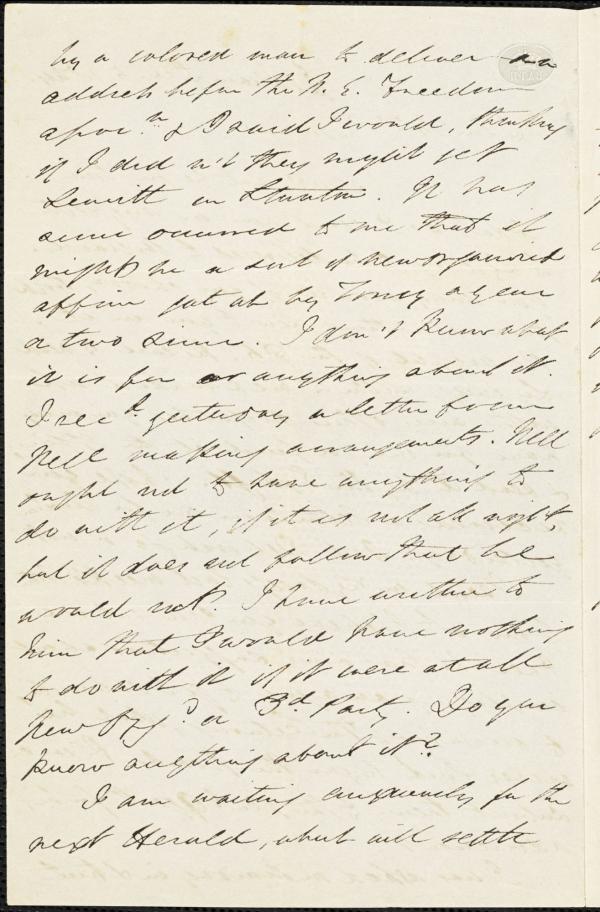 by a colored man to deliver an
address before the N. E. Freedom
Assoc.n & I said I would, thinking
if I did n't they might get
Leavitt or Stanton. It has
since occurred to me that it
might be a sort of new organized
affair got up by Torrey a year
or two since. I don't know what
it is for or anything about it.
I rec'd yesterday a letter from
Nell making arrangements. Nell
ought not to have anything to
do with it, if it is not all right,
but it does not follow that he
would not. I have written to
him that I would have nothing
to do with it if it were at all
New Org.d or 3d Party. Do you
know anything about it?
I am waiting anxiously for the
next Herald, what will settle